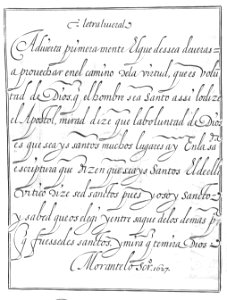 letra liueral
Aduierta primera mente El que dessea deueras a
prouechar en el camino dela virtud, que es volu
tad de Dios q el hombre sea santo assi lo dize
el Apostol, mirad dize que la boluntad de Dios
es que seays santos muchos lugares ay En la sa
escriptura que dizen que seays Santos El de el le
vitico dize sed sanctos pues yo soy Sancto
y sabed que os elegi y entre saque de los demas pª
q fuessedes sanctos. y mira q te mira Dios
Morante lo Scr. 1627.